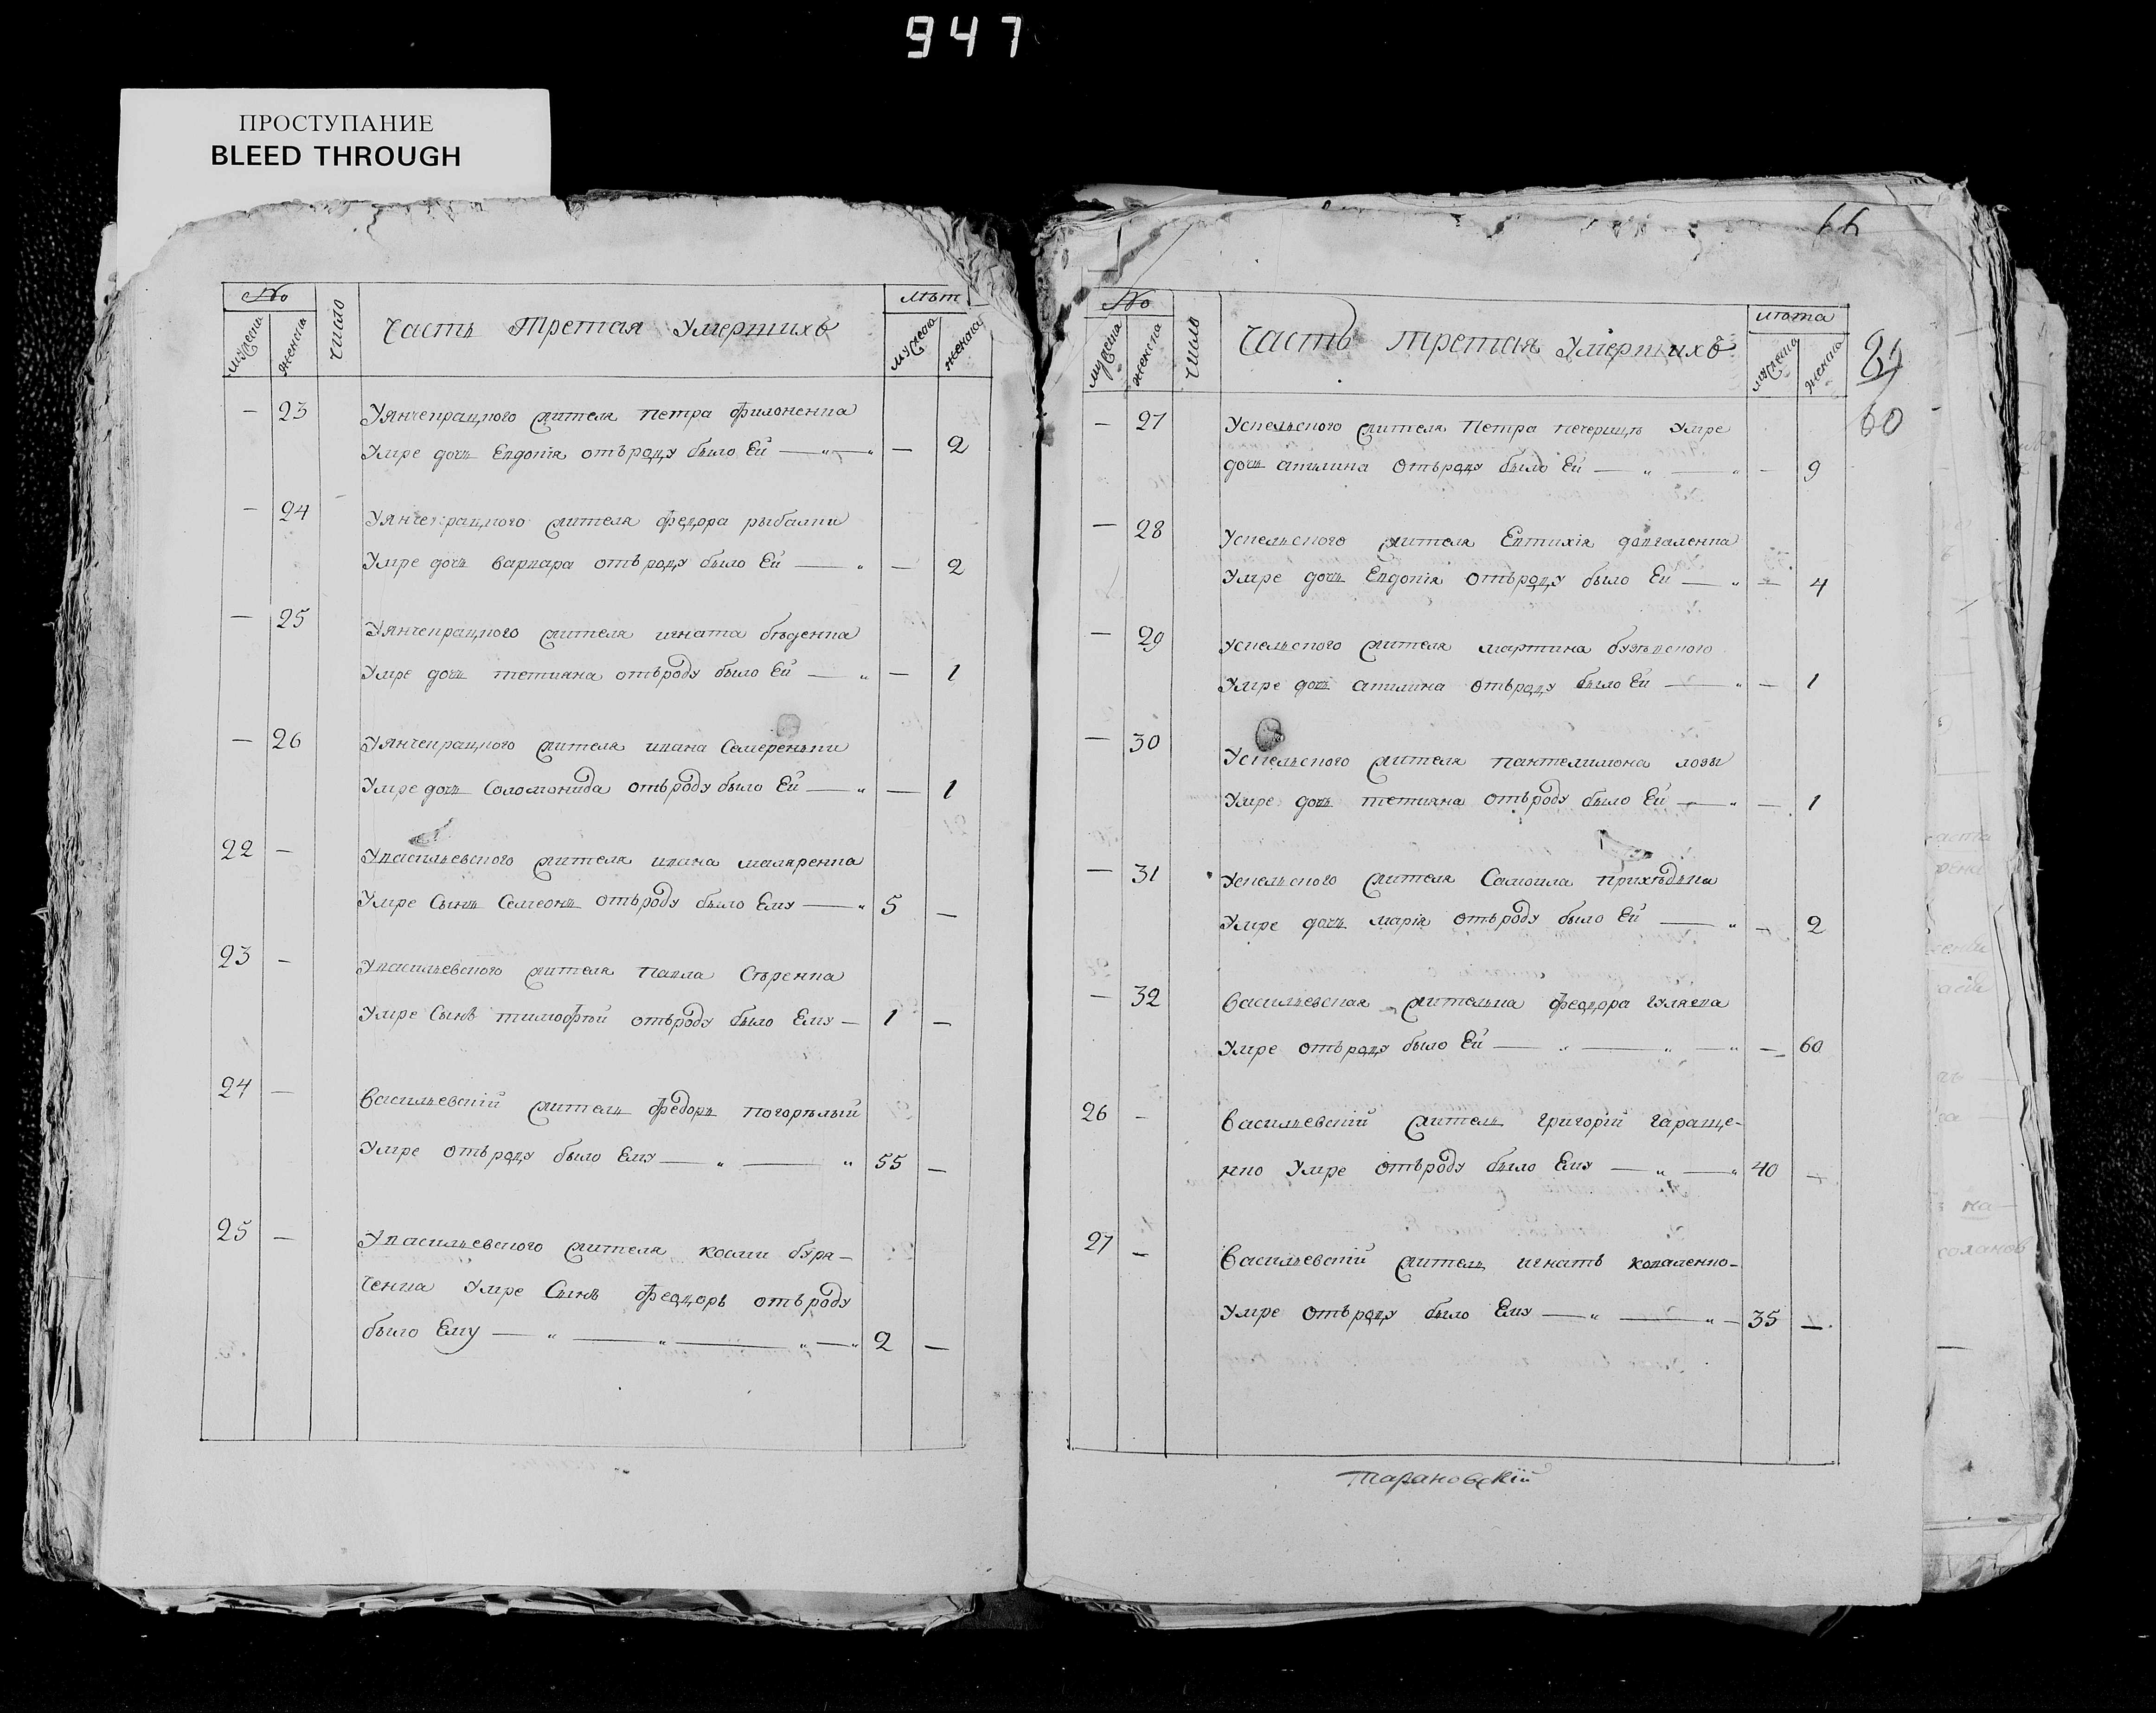 947
ПРОСТУПАНИЕ
BLEED THROUGH
№ число Часть третая Умершихъ лѣт
мужеска женска мужеска женска
— 23 Уянчекрацкого жителя петра филоненка
Умре дочь Евдокія отъроду было Ей — " — " — 2
— 24 Уянчекрацкого жителя федора рыбалки
Умре дочь варвара отъроду было Ей — " — 2
— 25 Уянчекрацкого жителя игната бѣденка
Умре дочь тетияна отъроду было Ей — " — 1
— 26 Уянчекрацкого жителя ивана Семеренки
Умре дочь Соломонида отъроду было Ей — " — 1
22 — Увасильевского жителя ивана маляренка
Умре Сынъ Семеонъ отъроду было Ему — " 5 —
23 — Увасильевского жителя павла Сѣренка
Умре Сынъ тимофѣй отъроду было Ему — 1 —
24 — Васильевскій житель федоръ погорѣлый
Умре отъроду было Ему — " — " 55 —
25 — Увасильевского жителя косми буря-
ченка Умре Сынъ феодоръ отъроду
было Ему — " — " — " — " 2 —
66
№ число Часть третая Умершихъ лѣта
мужеска женска мужеска женска
89
60
— 27 Ускельского жителя Петра печериць Умре
дочь акилина отъроду было Ей — " — " — 9
— 28 Ускельского жителя Евтихія довгаленка
Умре дочь Евдокія отъроду было Ей — " — 4
— 29 Ускельского жителя мартина бузѣвского
Умре дочь акилина отъроду было Ей — " — 1
— 30 Ускельского жителя пантелимона лозы
Умре дочь тетияна отъроду было Ей — " — 1
— 31 Ускельского жителя Самоила прихѣдька
Умре дочь марія отъроду было Ей — " — 2
— 32 Васильевская жителька феодора гуляева
Умре отъроду было Ей — " — " — " — 60
26 — Васильевскій житель григорій гараще-
нко Умре отъроду было Ему — " — " 40 —
27 — Васильевскій житель игнатъ коваленко-
Умре отъроду было Ему — " — " — 35 —
Тарановскій